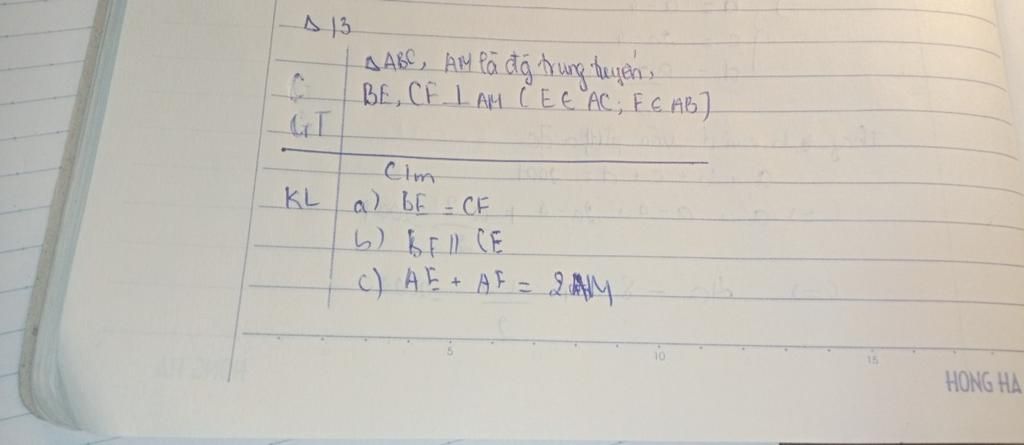 Δ 13
ΔABC, AM là đg trung tuyến,
BE, CF ⊥ AM ( E ∈ AC; F ∈ AB ]
GT
C/m
KL a) BE = CF
b) BF // CE
c) AE + AF = 2AM
5 10 15
HONG HA